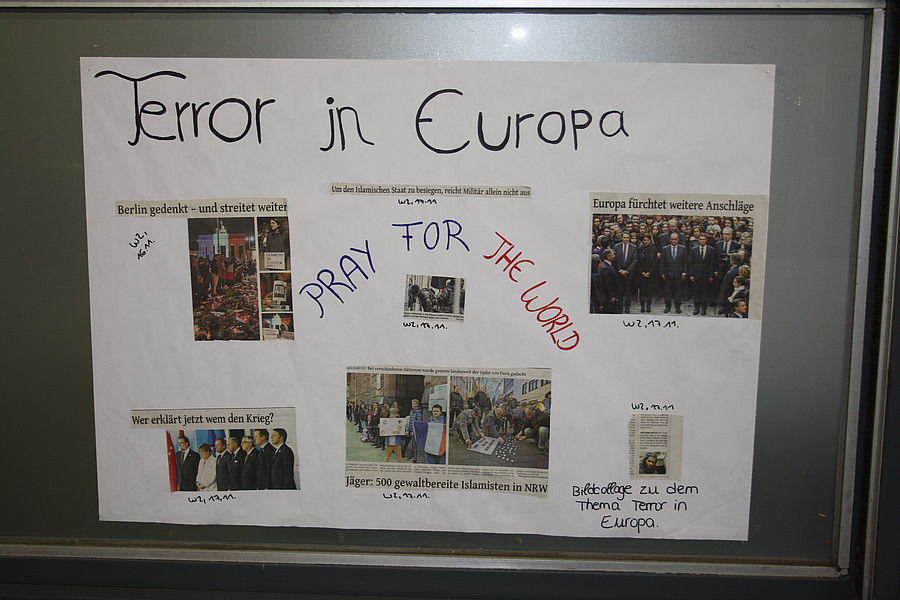 Terror in Europa
Um den Islamischen Staat zu besiegen, reicht Militär allein nicht aus
WZ, 17.11
Berlin gedenkt – und streitet weiter
WZ, 16.11.
Europa fürchtet weitere Anschläge
WZ, 17.11.
PRAY FOR THE WORLD
WZ, 17.11.
Wer erklärt jetzt wem den Krieg?
WZ, 17.11.
SOLIDARITÄT Bei verschiedenen Aktionen wurde gestern landesweit der Opfer von Paris gedacht
Jäger: 500 gewaltbereite Islamisten in NRW
WZ, 17.11.
WZ, 17.11
Bildcollage zu dem
Thema Terror in
Europa.